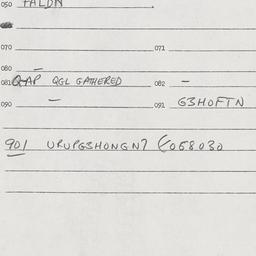 050 PALDN
070 071
080 -
081 QAP QGL GATHERED 082 -
090 - 091 G3HOFTN
901 URUPG3HONGN7 E058030